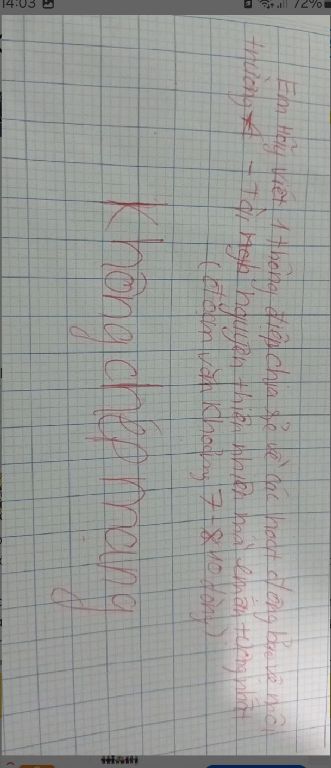 14:03
72%
Em hãy viết 1 thông điệp chia sẻ về các hoạt động bảo vệ môi
trường - Tài nguyên thiên nhiên mà em ấn tượng nhất
(1 đoạn văn khoảng 7-8 dòng)
Không chép mạng